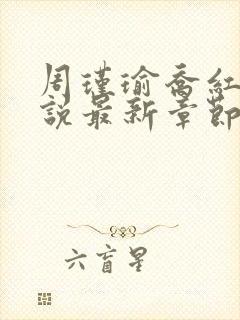 周瑾瑜喬紅
說最新章節
六盲星